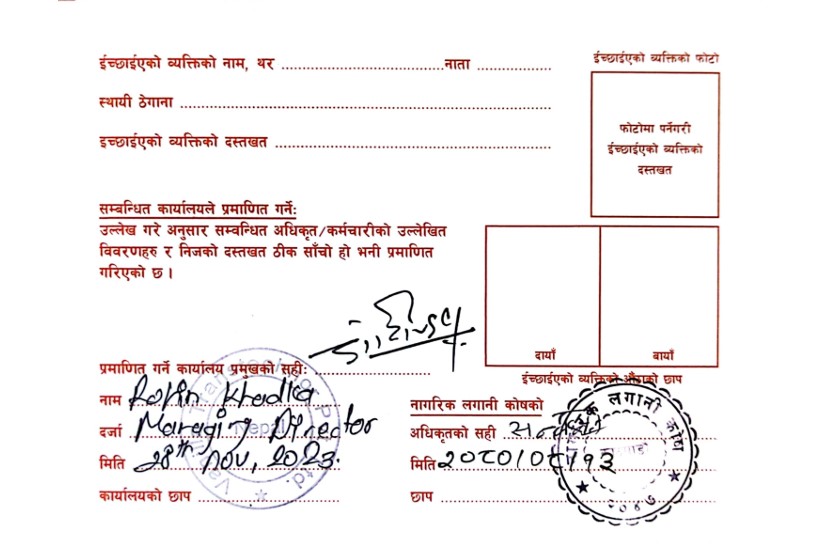 ईच्छाईएको व्यक्तिको नाम, थर ........................................ नाता ..................
ईच्छाईएको व्यक्तिको फोटो
स्थायी ठेगाना ........................................
फोटोमा पर्नेगरी
ईच्छाईएको व्यक्तिको
दस्तखत
इच्छाईएको व्यक्तिको दस्तखत ........................................
सम्बन्धित कार्यालयले प्रमाणित गर्नेः
उल्लेख गरे अनुसार सम्बन्धित अधिकृत/कर्मचारीको उल्लेखित
विवरणहरु र निजको दस्तखत ठीक साँचो हो भनी प्रमाणित
गरिएको छ ।
दायाँ
बायाँ
ईच्छाईएको व्यक्तिको औंठाको छाप
प्रमाणित गर्ने कार्यालय प्रमुखको सही: ....................
नाम Robin Khadka
दर्जा Managing Director
मिति 28th Nov, 2023.
कार्यालयको छाप ....................
नागरिक लगानी कोषको
अधिकृतको सही
मिति
छाप ....................
Nepal
Ltd.
क लगानी कोष
२०४७